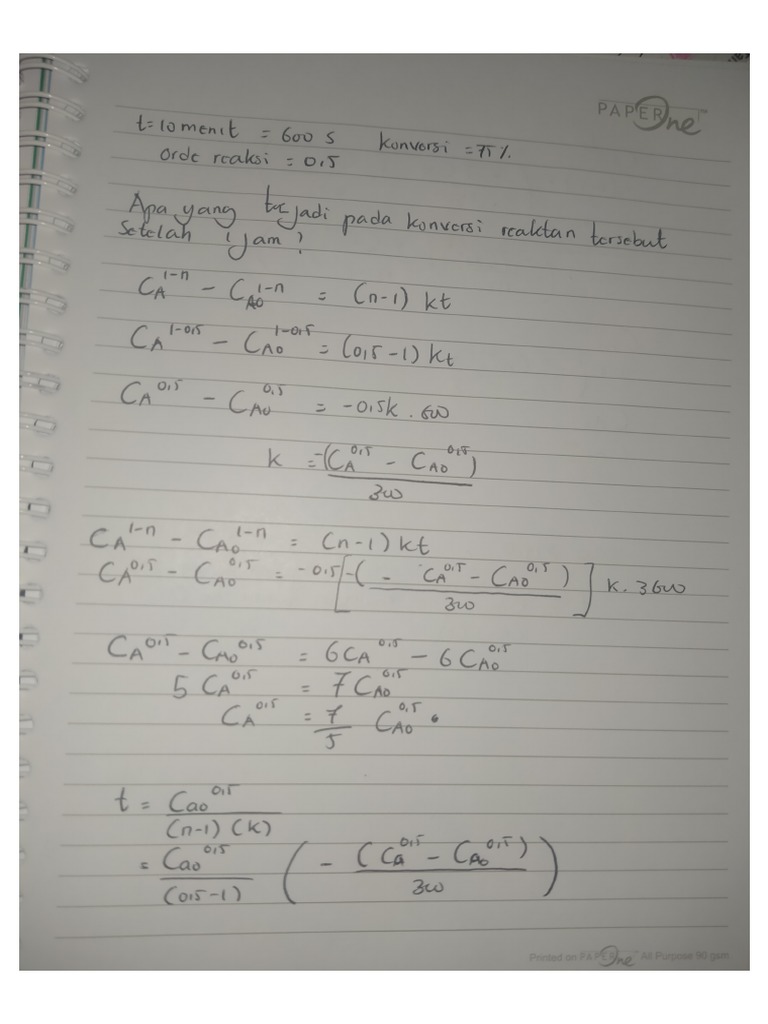 PAPER One™
t = 10 menit = 600 s konversi = 75%.
Orde reaksi = 0,5
Apa yang terjadi pada konversi reaktan tersebut
Setelah 1 jam?
C_A^{1-n} - C_{A0}^{1-n} = (n-1) kt
C_A^{1-0,5} - C_{A0}^{1-0,5} = (0,5-1) kt
C_A^{0,5} - C_{A0}^{0,5} = -0,5k . 600
k = -(C_A^{0,5} - C_{A0}^{0,5}) / 300
C_A^{1-n} - C_{A0}^{1-n} = (n-1) kt
C_A^{0,5} - C_{A0}^{0,5} = -0,5 [-(- C_A^{0,5} - C_{A0}^{0,5}) / 300] k. 3600
C_A^{0,5} - C_{A0}^{0,5} = 6 C_A^{0,5} - 6 C_{A0}^{0,5}
5 C_A^{0,5} = 7 C_{A0}^{0,5}
C_A^{0,5} = 7/5 C_{A0}^{0,5} •
t = Cao^{0,5} / (n-1) (k)
= Cao^{0,5} / (0,5-1) ( - (C_A^{0,5} - C_{A0}^{0,5}) / 300 )
Printed on PAPER One™ All Purpose 90 gsm